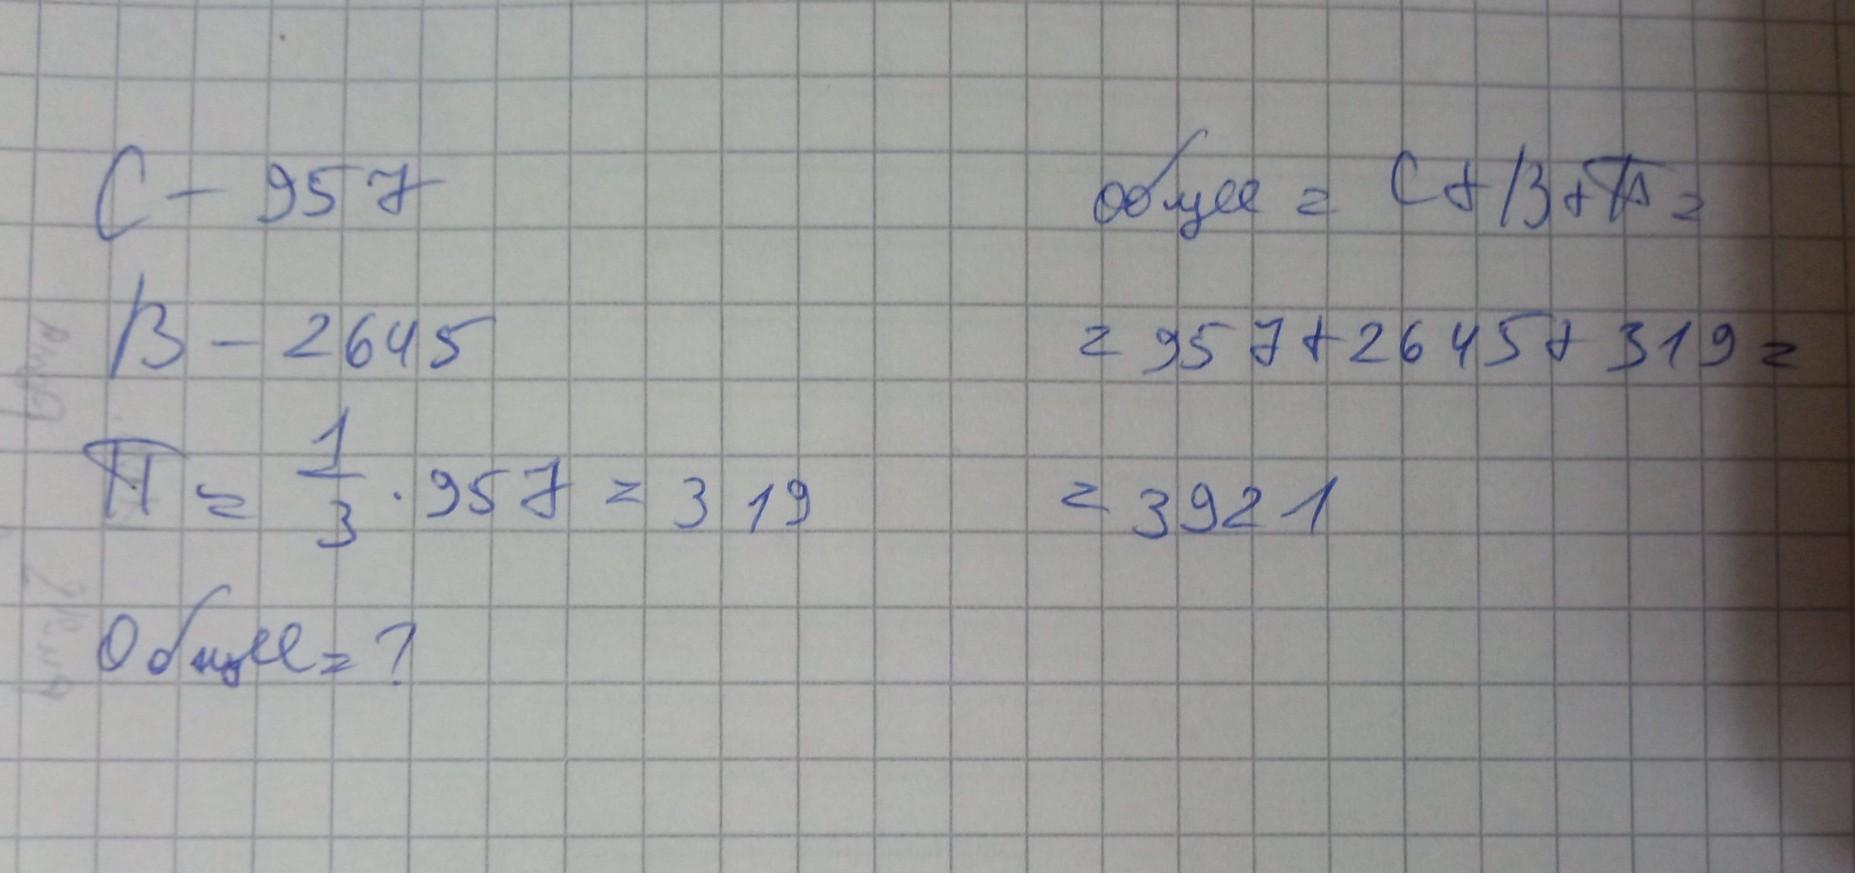 С - 957
В - 2645
П = 1/3 · 957 = 319
Общее = ?
общее = С + В + П =
= 957 + 2645 + 319 =
= 3921